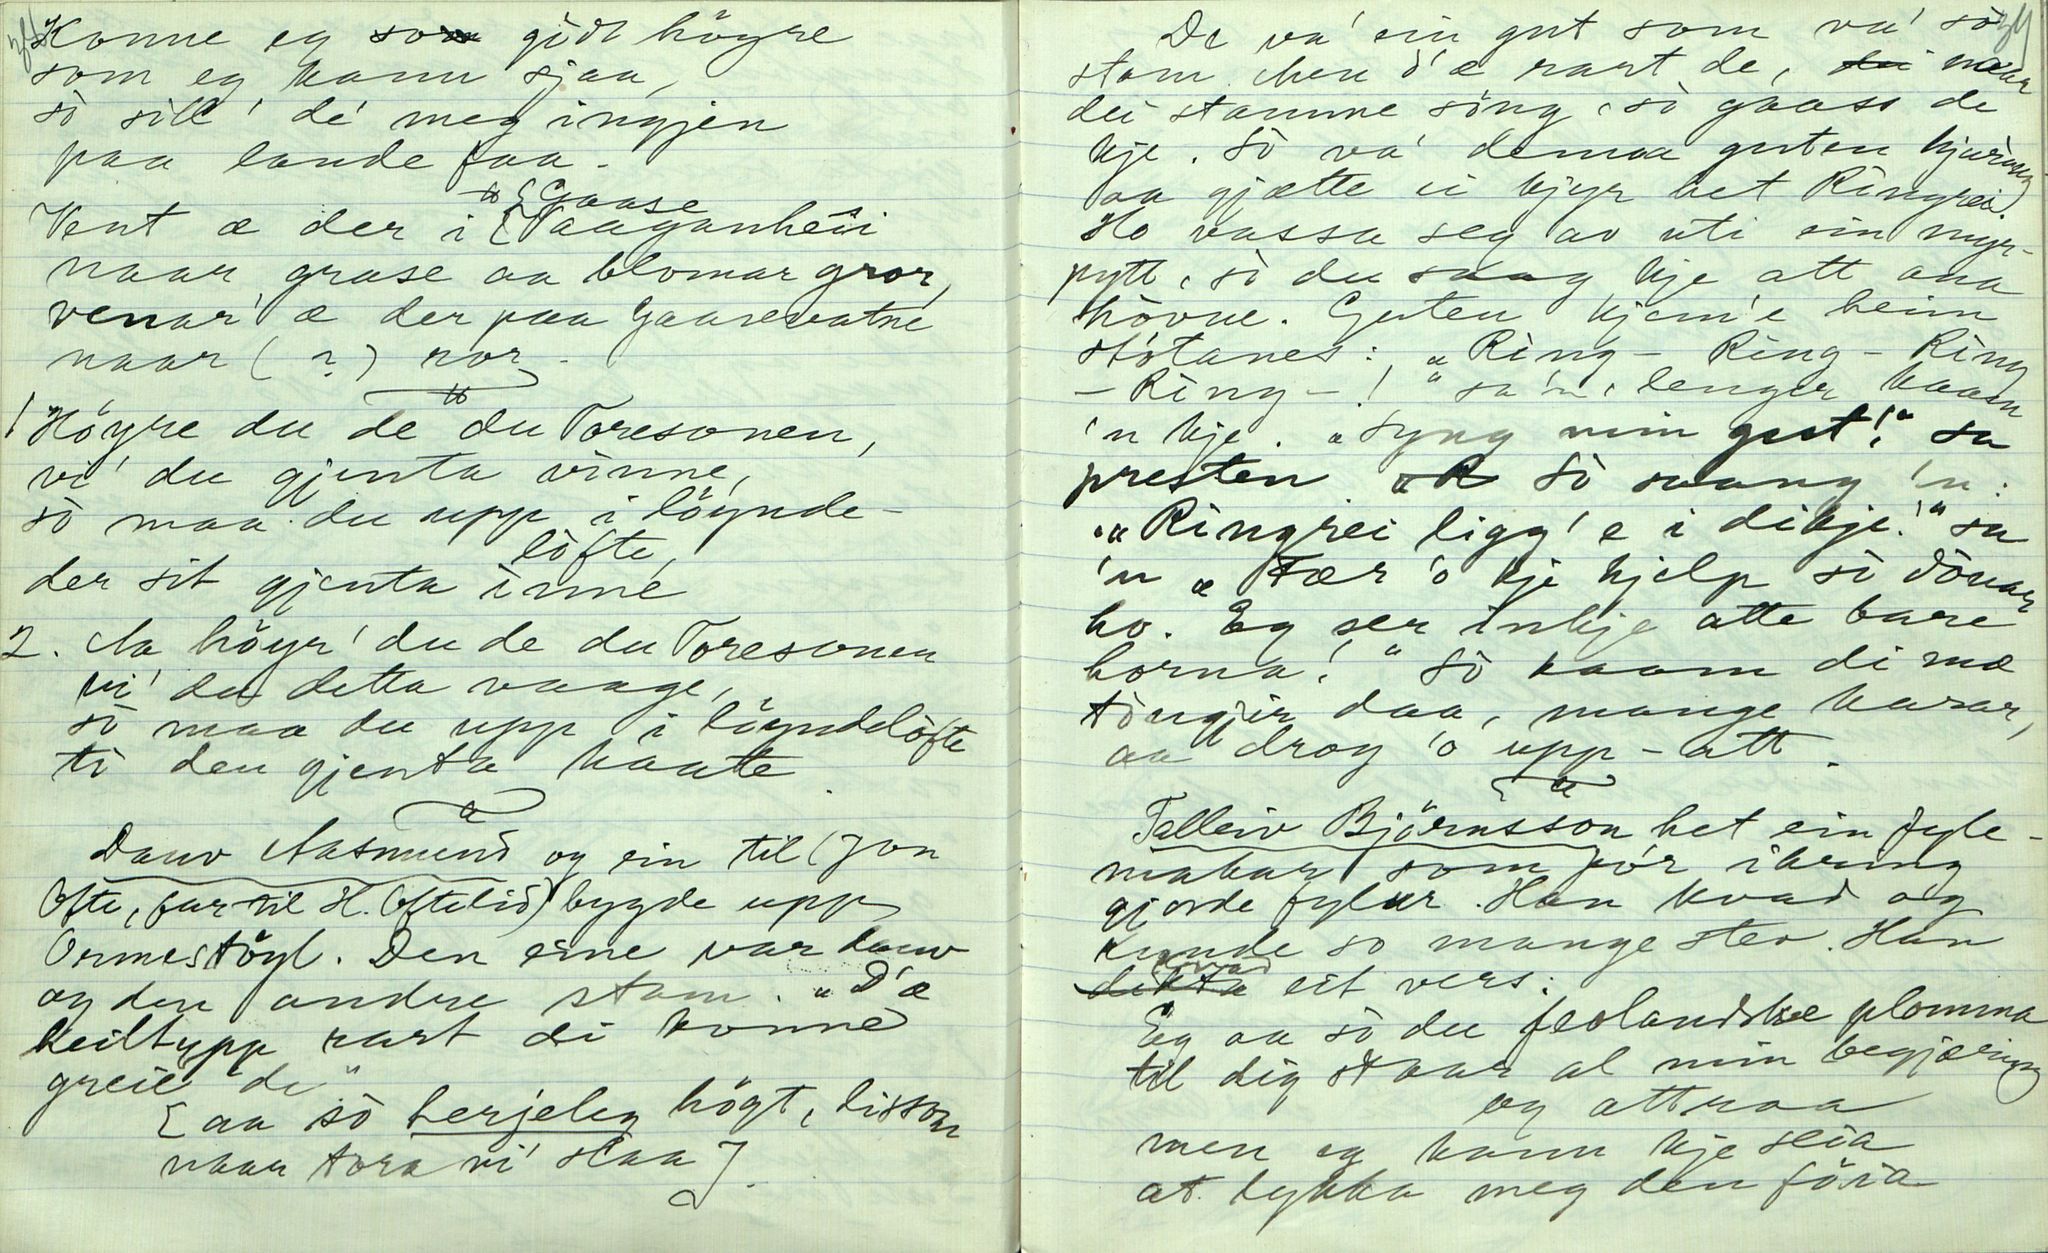 Konne eg gjött höyre
som eg kann sjaa,
sò sill' de' meg ingjen
paa lande faa.
Vent æ der i {Gaase
{Vaaganheii
naar grase aa blomar gror,
venar' æ der paa Gaasevatne
naar (?) ror
1 Höyre du de du Toresonen,
vi' du gjenta vinne,
sò maa du upp i löynde-
löfte,
der sit gjenta inne
2. Aa höyr' du de du Toresonen
vi' du detta vaage,
sò maa du upp i löyndelöfte
ti den gjenta kaate.
Dauv Aasmund og ein til (Jon
Ofte, far til H. Oftelid) bygde upp
Ormestöyl. Den eine var dauv
og den andre stam. "D'æ
heiltupp rart di konne
greie de"
[aa sò herjeleg högt, lissom
naar tora vi' slaa].
De va' ein gut som va' sò
stam. Men d'æ rart de, naar
dei stamme söng, sò gaass de
kje. Sò va' demaa guten hjuring
aa gjætte ei kjyr het Ringrei.
Ho vassa seg av uti ein myr-
pytt, sò du saag kje att ana
hovue. Guten kjem'e heim
stotanes: "Ring - Ring - Ring
- Ring - !" sa 'n, lenger kaam
'n kje. "Syng min gut!" sa
presten Sò svang 'n:
"Ringrei ligg'e i dikje!" sa
'n "Fær 'o kje hjelp sò dönar
ho. Eg ser inkje atte bare
horna!" Sò kaam di mæ
töngjir daa, mange karar,
aa drog 'o upp-att.
Talleiv Björnsson het ein fyle-
makar som fór ikring
gjorde fylur. Han kvad og
kunde so mange stev. Han
kvad eit vers:
Eg aa sò du feolandske plomma
til dig staar al min begjæring
og attraa
men eg kann kje seia
at lykka meg den föra